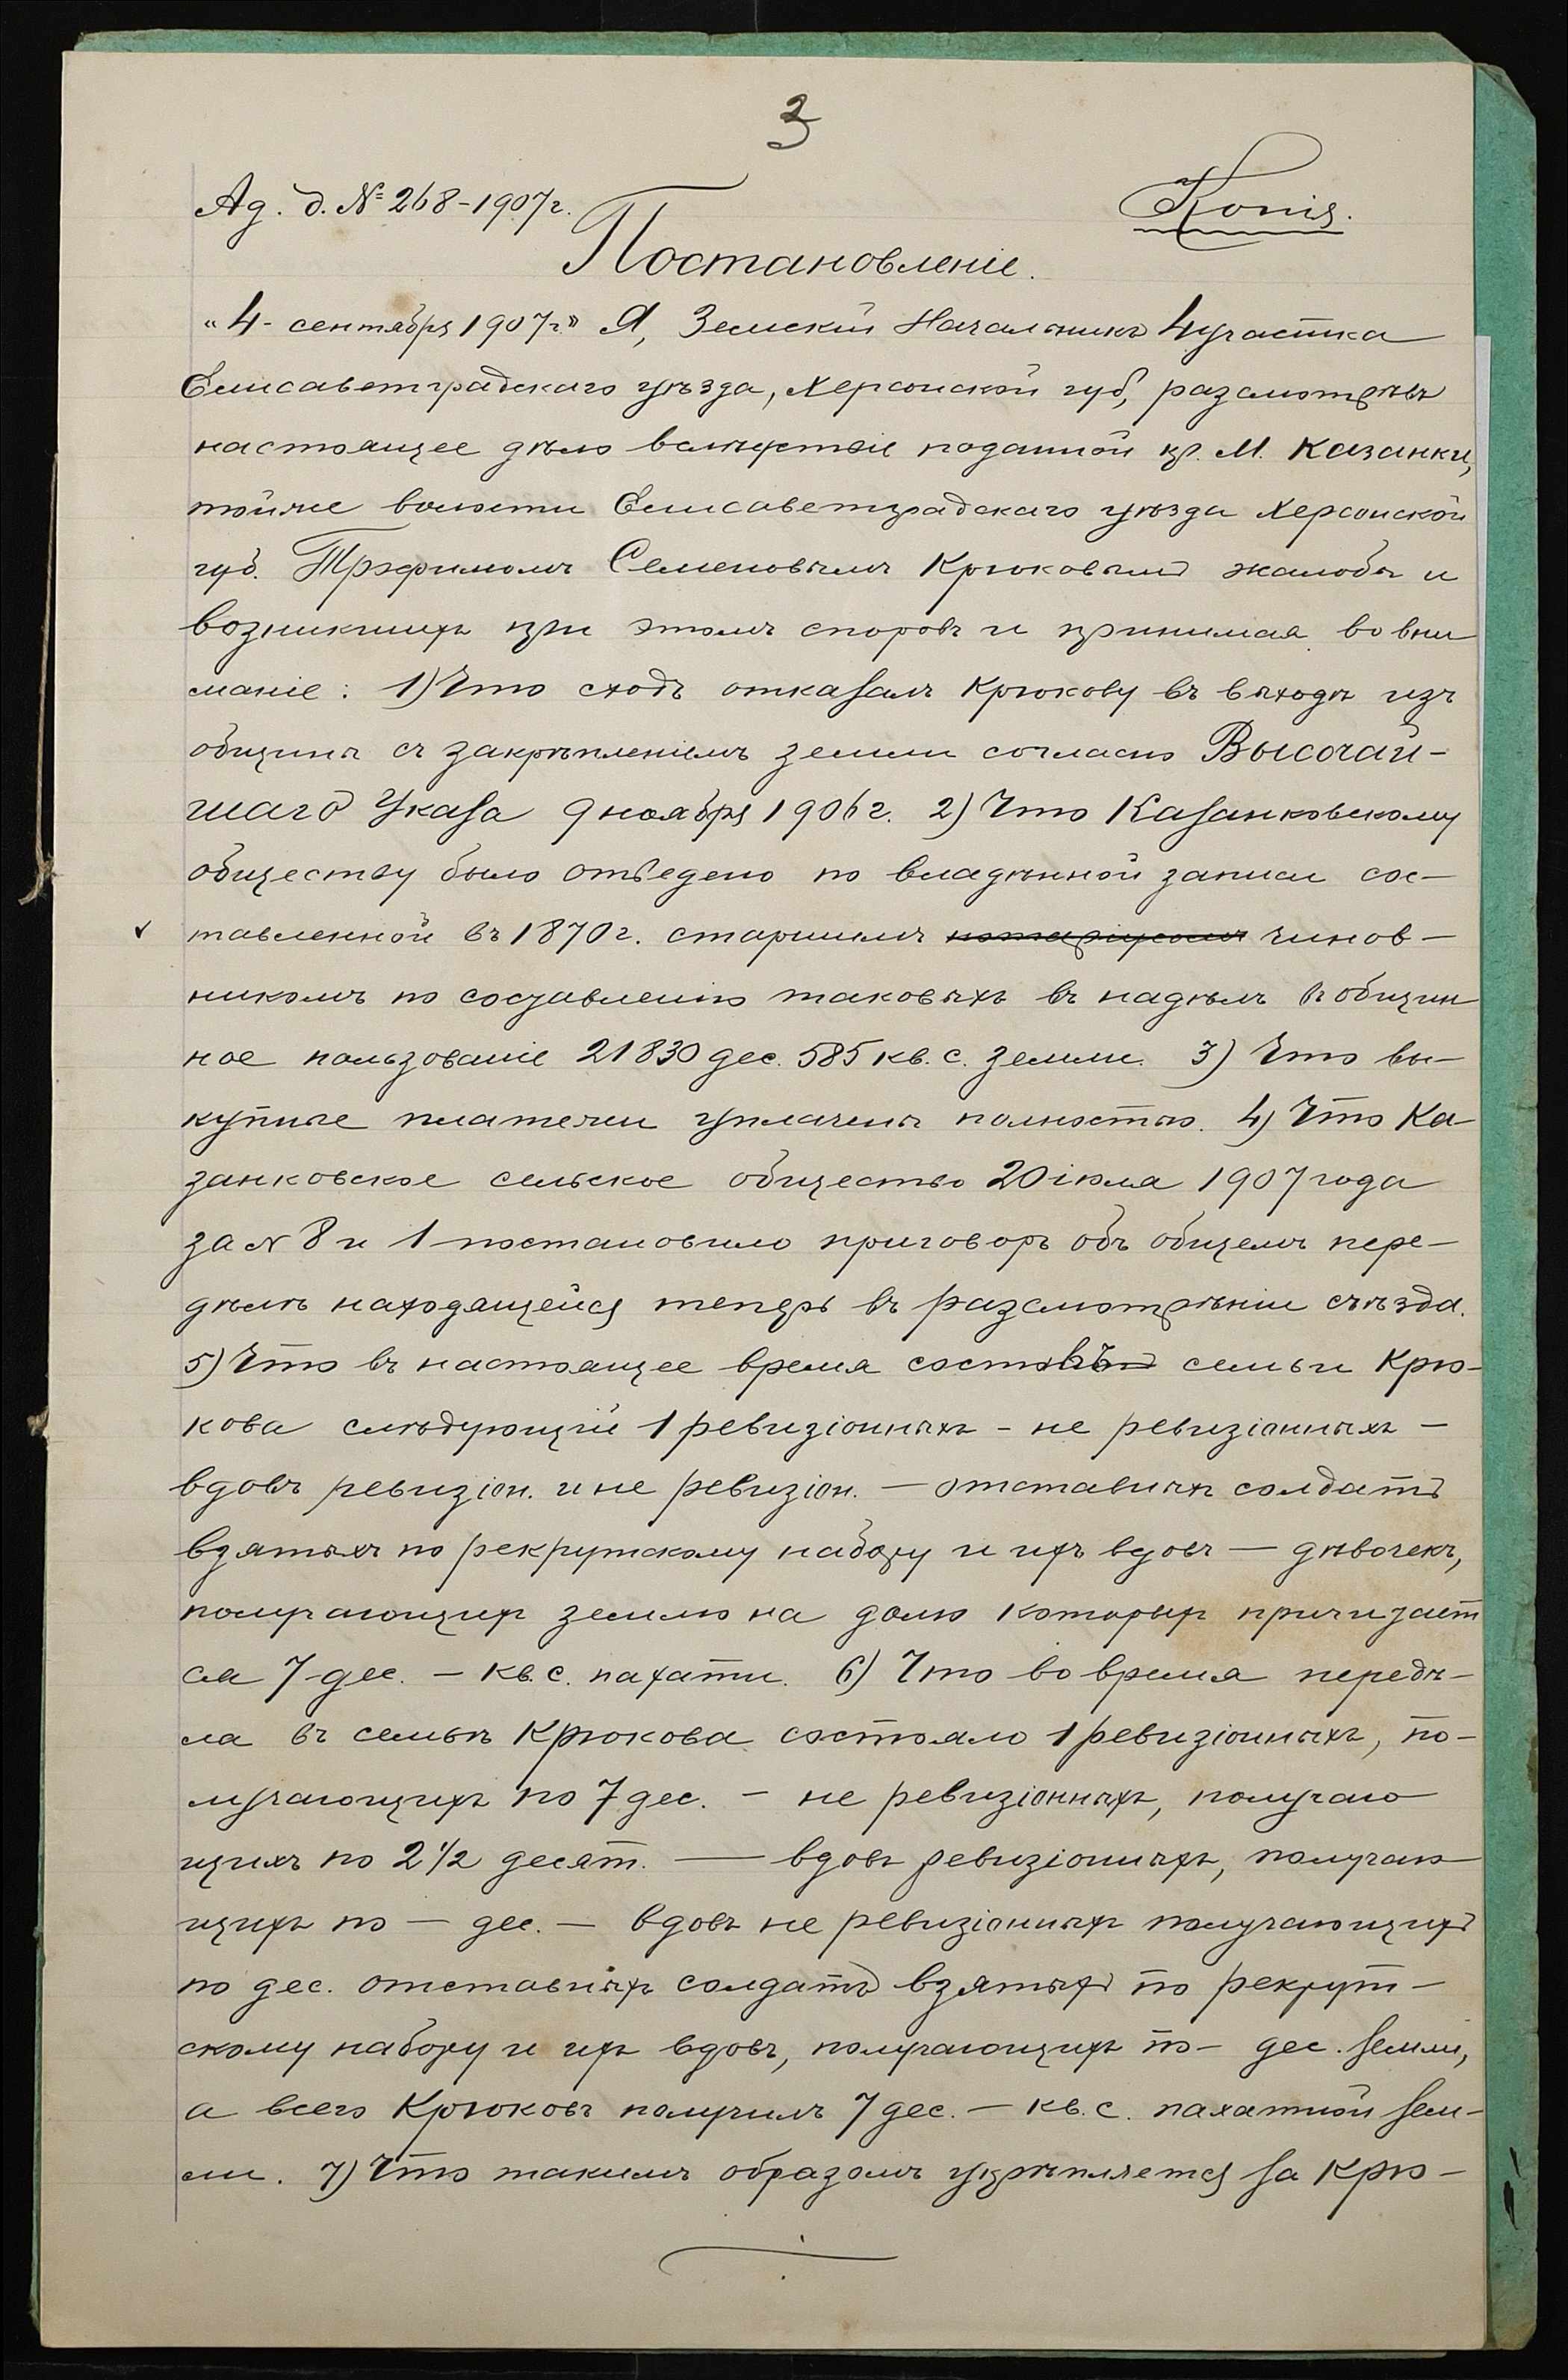 3
Ад. д. № 268-1907г.
Копія.
Постановленіе.
"4 - сентября 1907г." Я, Земскій Начальникъ 4 участка
Елисаветградскаго уѣзда, Херсонской губ, разсмотрѣвъ
настоящее дѣло вслѣдствіе поданной кр. М. Казанки,
тойже волости Елисаветградскаго уѣзда Херсонской
губ. Трофимомъ Семеновымъ Крюковымъ жалобы и
возникшихъ при этомъ споровъ и принимая во вни
маніе: 1) Что сходъ отказалъ Крюкову въ выходѣ изъ
общины съ закрѣпленіемъ земли согласно Высочай-
шаго Указа 9 ноября 1906 г. 2) Что Казанковскому
обществу было отведено по владѣнной записи сос-
тавленной въ 1870 г. старшимъ нотаріусомъ чинов-
никомъ по составленію таковыхъ въ надѣлъ въ общин
ное пользованіе 21830 дес. 585 кв. с. земли. 3) Что вы-
купные платежи уплачены полностью. 4) Что Ка-
занковское сельское общество 20 іюля 1907 года
за N 8 и 1 постановило приговоръ объ общемъ пере-
дѣлѣ находящейся теперь въ разсмотрѣніи съѣзда.
5) Что въ настоящее время составъ семьи Крю-
кова слѣдующій 1 ревизіонныхъ - не ревизіонныхъ -
вдовъ ревизіон. и не ревизіон. - отставныхъ солдатъ
взятыхъ по рекрутскому набору и ихъ вдовъ - дѣвочекъ,
получающихъ землю на долю которыхъ причитает
ся 7 дес. - кв. с. пахати. 6) Что во время передѣ-
ла въ семьѣ Крюкова состояло 1 ревизіонныхъ, по-
лучающихъ по 7 дес. - не ревизіонныхъ, получаю
щихъ по 2 1/2 десят. - вдовъ ревизіонныхъ, получаю
щихъ по - дес. - вдовъ не ревизіонныхъ получающихъ
по дес. отставныхъ солдатъ взятыхъ по рекрут-
скому набору и ихъ вдовъ, получающихъ по - дес. земли,
а всего Крюковъ получилъ 7 дес. - кв. с. пахатной зем-
ли. 7) Что такимъ образомъ укрѣпляется за Крю-